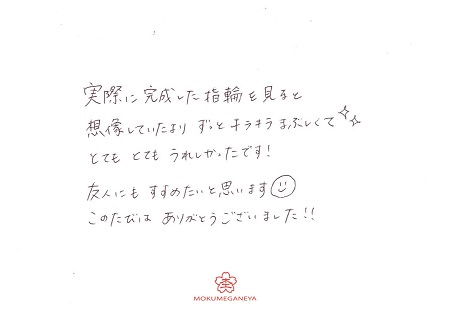 実際に完成した指輪を見ると
想像していたより ずっとキラキラまぶしくて
とても とても うれしかったです!
友人にも すすめたいと思います
このたびは ありがとうございました!!
MOKUMEGANEYA